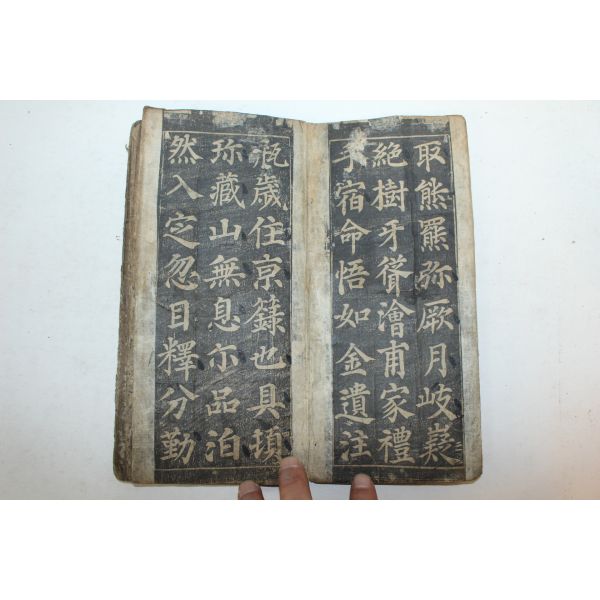 取熊羆弥厥月岐嶷
絶樹牙聳澮甫家禮
手宿命悟如金遺注
瓶歲住京籙也具頊
珎藏山無息尒品泊
然入定忽目釋分勤